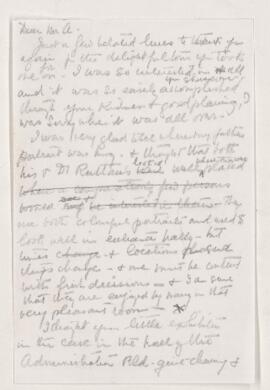 Dear Mr A.
Just a few belated lines to thank you
again for the delightful tour you took
me on. I was so interested in it all
and it was so easily accomplished
through your kindness & good planning, I
was sorry when it was all over.
I was very glad to see where my father's
portrait was hung & thought that both
his & Dr well placed
when a comparatively few persons
They
are both colorful portraits and used to
look well in Hall - but
times change & locations
change - & one must be content
with final decisions - & I am sure
that they are enjoyed by many in that
very pleasant room -
I thought your little exhibition
in the case in the hall of the
Administration Bld. quite charming &